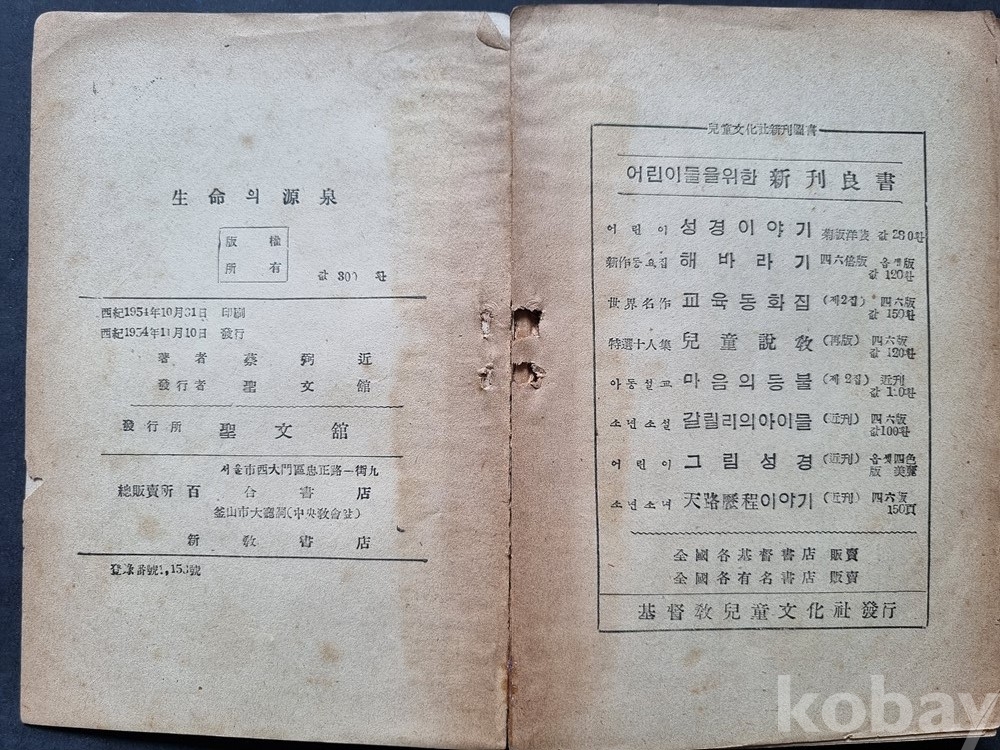 生命의源泉
版權
所有
값 300 환
西紀1954年10月31日 印刷
西紀1954年11月10日 發行
著者 蔡弼近
發行者 聖文舘
發行所 聖文舘
서울市西大門區忠正路一街九
總販賣所 百合書店
釜山市大廳洞(中央敎會앞)
新敎書店
登錄番號1,153號
兒童文化社新刊圖書
어린이들을위한 新刊良書
어린이 성경이야기 菊版洋裝 값 280환
新作동요집 해바라기 四六倍版 옵셑版
값 120환
世界名作 교육동화집 (제2집) 四六版
값 150환
特選十人集 兒童說敎 (再版) 四六版
값 120환
아동설교 마음의등불 (제2집) 近刊
값 110환
소년소설 갈릴리의아이들 (近刊) 四六版
값100환
어린이 그림성경 (近刊) 옵셑四色
版 美麗
소년소녀 天路歷程이야기 (近刊) 四六版
150頁
全國各基督書店 販賣
全國各有名書店 販賣
基督敎兒童文化社發行
kobay